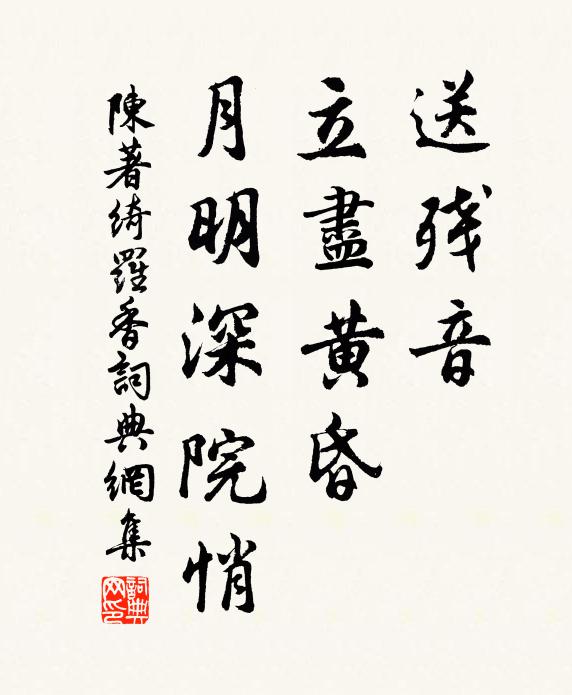 送残音
立盡黄昏
月明深院悄
陳著綺羅香詞典網集
詞典
网印